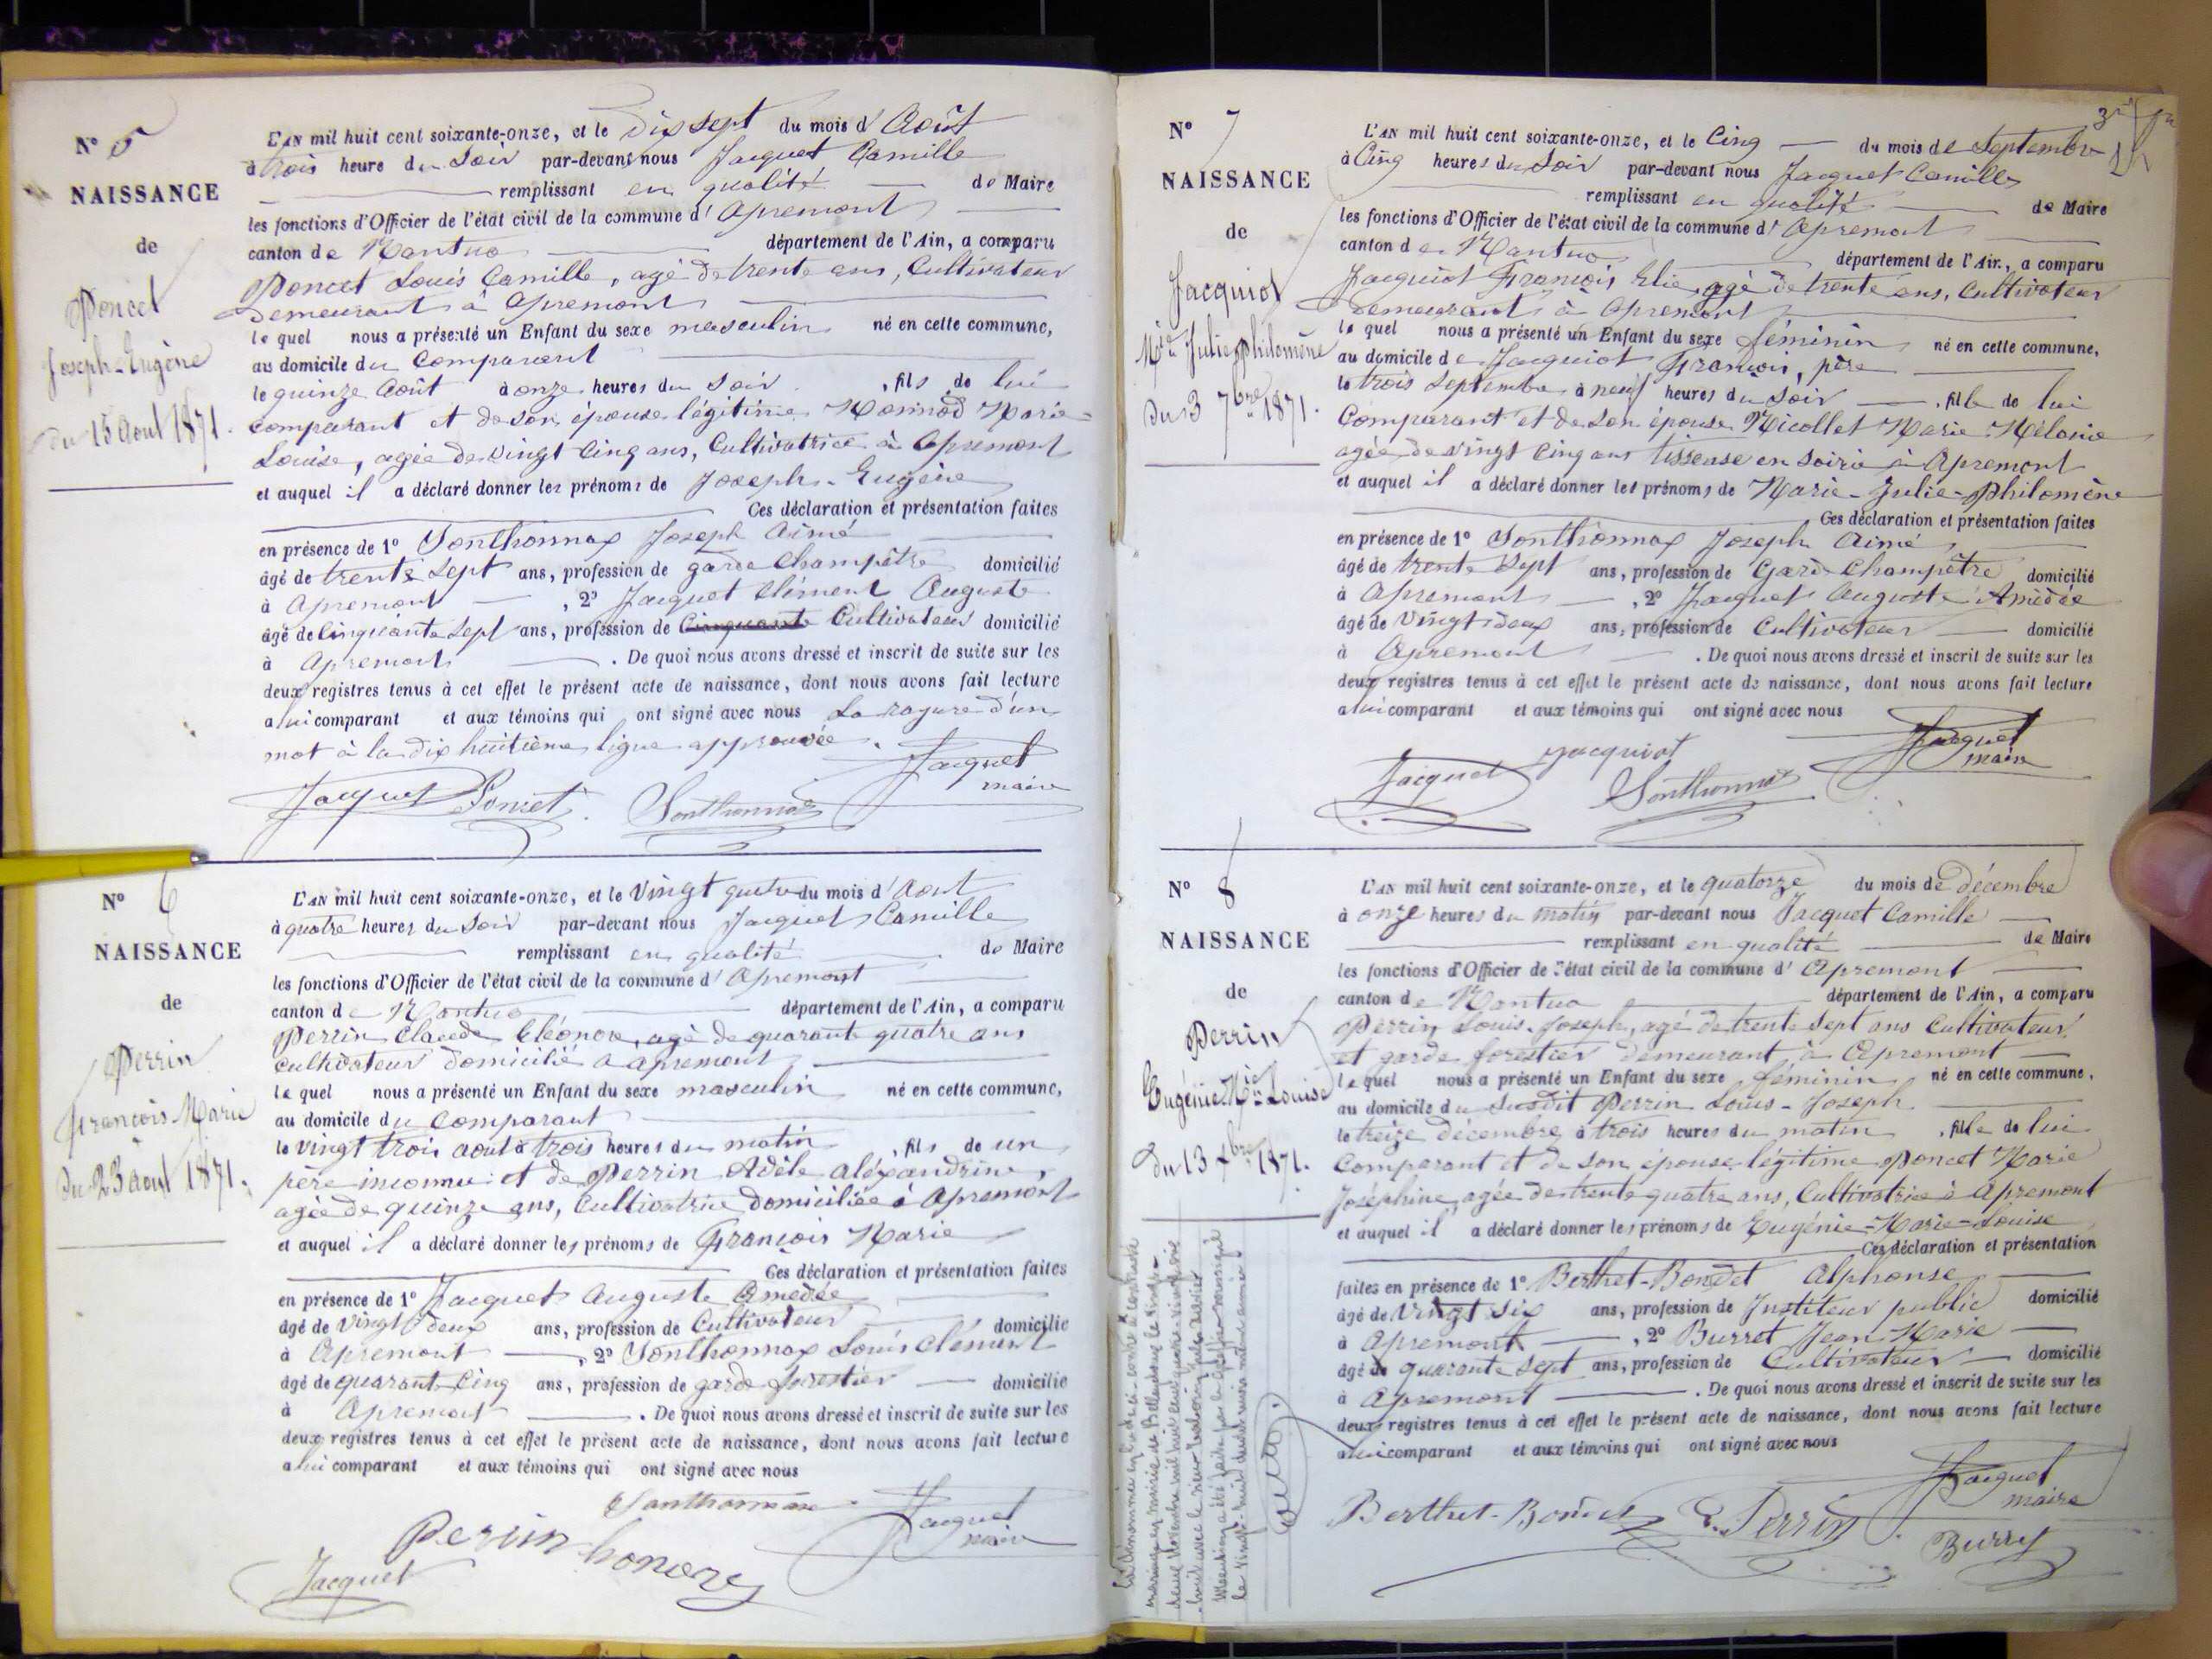 N° 5
NAISSANCE
de
Poncet
Joseph-Eugène
du 15 Aout 1871.
L'AN mil huit cent soixante-onze, et le dix sept du mois d'Août
à trois heure du Soir par-devant nous Jacquet Camille
remplissant en qualité de Maire
les fonctions d'Officier de l'état civil de la commune d'Apremont
canton de Nantua département de l'Ain, a comparu
Poncet Louis Camille, agé de trente ans, Cultivateur
demeurant à Apremont
lequel nous a présenté un Enfant du sexe masculin né en cette commune,
au domicile du Comparant
le quinze Août à onze heures du Soir, fils de lui
comparant et de son épouse légitime Monnod Marie-
Louise, agée de vingt cinq ans, Cultivatrice à Apremont
et auquel il a déclaré donner les prénoms de Joseph-Eugène
Ces déclaration et présentation faites
en présence de 1° Sonthonnax Joseph Aimé
âgé de trente sept ans, profession de garde champêtre domicilié
à Apremont, 2° Jacquet Clément Auguste
âgé de Cinquante sept ans, profession de Cinquante Cultivateur domicilié
à Apremont. De quoi nous avons dressé et inscrit de suite sur les
deux registres tenus à cet effet le présent acte de naissance, dont nous avons fait lecture
a lui comparant et aux témoins qui ont signé avec nous La rayure d'un
mot à la dix huitième ligne approuvée.
Jacquet Poncet Sonthonnax Jacquet
maire
N° 6
NAISSANCE
de
Perrin
François Marie
du 23 aout 1871.
L'AN mil huit cent soixante-onze, et le Vingt quatre du mois d'Aout
à quatre heures du Soir par-devant nous Jacquet Camille
remplissant en qualité de Maire
les fonctions d'Officier de l'état civil de la commune d'Apremont
canton de Nantua département de l'Ain, a comparu
Perrin Claude Eléonore, agé de quarante quatre ans
cultivateur domicilié à Apremont
lequel nous a présenté un Enfant du sexe masculin né en cette commune,
au domicile du Comparant
le vingt trois aout à trois heures du matin, fils de un
père inconnu et de Perrin Adèle alexandrine,
agée de quinze ans, Cultivatrice domiciliée à Apremont
et auquel il a déclaré donner les prénoms de François Marie
Ces déclaration et présentation faites
en présence de 1° Jacquet Auguste Amédée
âgé de vingt deux ans, profession de Cultivateur domicilié
à Apremont, 2° Sonthonnax Louis Clément
âgé de quarante cinq ans, profession de garde forestier domicilié
à Apremont. De quoi nous avons dressé et inscrit de suite sur les
deux registres tenus à cet effet le présent acte de naissance, dont nous avons fait lecture
a lui comparant et aux témoins qui ont signé avec nous
Sonthonnax Jacquet
maire
Perrin
Jacquet
N° 7
NAISSANCE
de
Jacquiot
Mie Julie Philomène
Du 3 7bre 1871.
L'AN mil huit cent soixante-onze, et le Cinq du mois de Septembre
à Cinq heures du Soir par-devant nous Jacquet Camille
remplissant en qualité de Maire
les fonctions d'Officier de l'état civil de la commune d'Apremont
canton de Nantua département de l'Ain, a comparu
Jacquiot François Elie, agé de trente ans, Cultivateur
demeurant à Apremont
lequel nous a présenté un Enfant du sexe féminin né en cette commune,
au domicile de Jacquiot François, père
le trois Septembre à neuf heures du Soir, fille de lui
Comparant et de son épouse Nicollet Marie Mélanie
agée de vingt Cinq ans tisseuse en soirie à Apremont
et auquel il a déclaré donner les prénoms de Marie-Julie-Philomène
Ces déclaration et présentation faites
en présence de 1° Sonthonnax Joseph Aimé
âgé de trente sept ans, profession de Garde Champêtre domicilié
à Apremont, 2° Jacquet Auguste Amédée
âgé de Vingt deux ans, profession de Cultivateur domicilié
à Apremont. De quoi nous avons dressé et inscrit de suite sur les
deux registres tenus à cet effet le présent acte de naissance, dont nous avons fait lecture
a lui comparant et aux témoins qui ont signé avec nous
Jacquiot Jacquet
maire
Jacquet Sonthonnax
N° 8
NAISSANCE
de
Perrin
Eugénie Mie Louise
du 13 Xbre 1871.
L'AN mil huit cent soixante-onze, et le quatorze du mois de décembre
à onze heures du matin par-devant nous Jacquet Camille
remplissant en qualité de Maire
les fonctions d'Officier de l'état civil de la commune d'Apremont
canton de Nantua département de l'Ain, a comparu
Perrin Louis-Joseph, agé de trente sept ans Cultivateur
et garde forestier demeurant à Apremont
lequel nous a présenté un Enfant du sexe féminin né en cette commune,
au domicile du susdit Perrin Louis-Joseph
le treize décembre à trois heures du matin, fille de lui
Comparant et de son épouse légitime Poncet Marie
Joséphine, agée de trente quatre ans, Cultivatrice à Apremont
et auquel il a déclaré donner les prénoms de Eugénie-Marie-Louise
Ces déclaration et présentation
faites en présence de 1° Berthet-Bondet Alphonse
âgé de vingt six ans, profession de Instituteur public domicilié
à Apremont, 2° Burret Jean Marie
âgé de quarante sept ans, profession de Cultivateur domicilié
à Apremont. De quoi nous avons dressé et inscrit de suite sur les
deux registres tenus à cet effet le présent acte de naissance, dont nous avons fait lecture
a lui comparant et aux témoins qui ont signé avec nous
Jacquet
maire
Berthet-Bondet Perrin
Burret
La dénommée en l'acte ci-contre a contracté
mariage en mairie de Bellegarde le vingt-